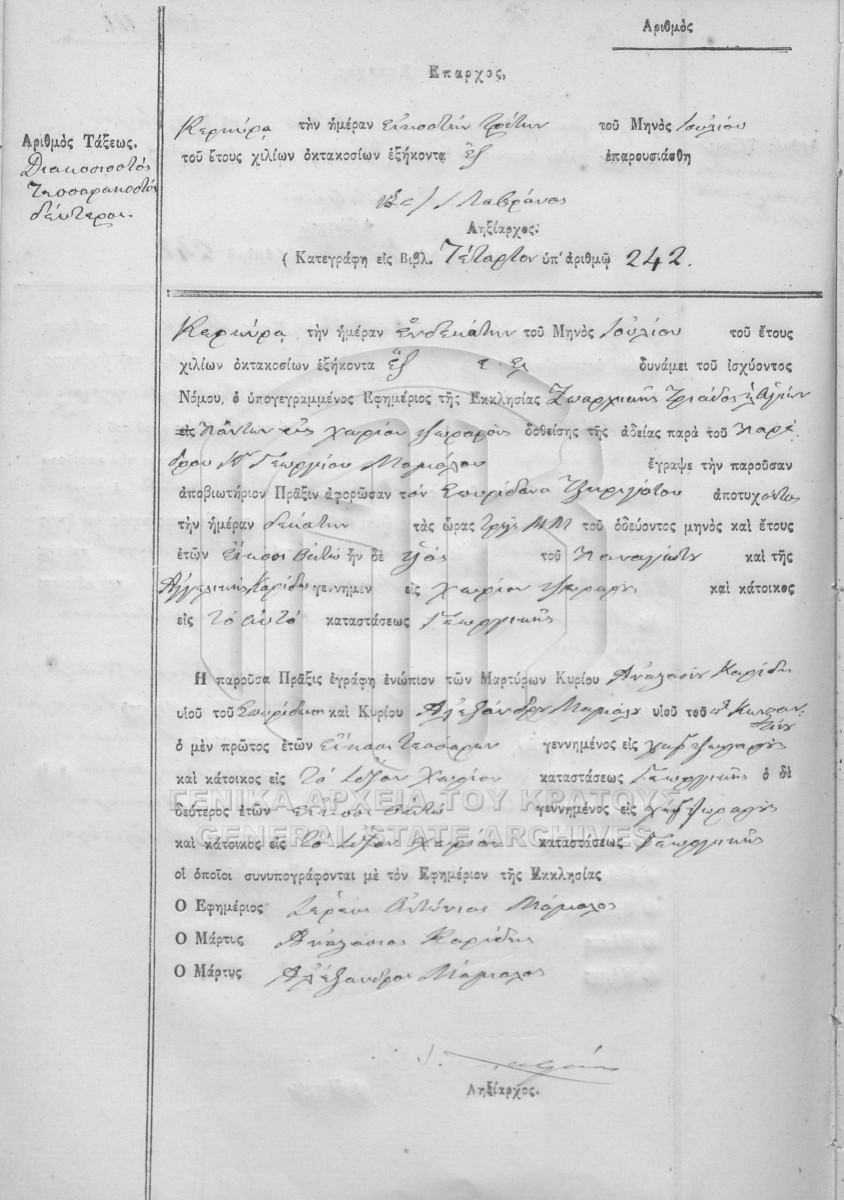 Αριθμὸς
Επαρχος,
Αριθμὸς Τάξεως.
Διακοσιοστός
Τεσσαρακοστός
δέυτερος.
Κερκύρᾳ τὴν ἡμέραν εἰκοστὴν τρίτην τοῦ Μηνὸς Ἰουλίου
τοῦ ἔτους χιλίων ὀκτακοσίων ἑξήκοντα ἓξ ἐπαρουσιάσθη
Λαβράνος
Ληξίαρχος.
( Κατεγράφη εἰς Βιβλ. Τέταρτον ὑπ' ἀριθμῷ 242.
Κερκύρᾳ τὴν ἡμέραν ἑνδεκάτην τοῦ Μηνὸς Ἰουλίου τοῦ ἔτους
χιλίων ὀκτακοσίων ἑξήκοντα ἓξ δυνάμει τοῦ ἰσχύοντος
Νόμου, ὁ ὑπογεγραμμένος Εφημέριος τῆς Εκκλησίας Ζωαρχικῆς Τριάδος κ Ἁγίων
εἰς Πάντων εἰς χωρίον δοθείσης τῆς ἀδείας παρὰ τοῦ Παρέ
δρου Κ Γεωργίου Μαμάλου ἔγραψε τὴν παροῦσαν
ἀποβιωτήριον Πρᾶξιν ἀφορῶσαν τὸν Σπυρίδωνα ἀποτυχόντα
τὴν ἡμέραν δεκάτην τὰς ὥρας τρῆς ΜΜ τοῦ ὁδεύοντος μηνὸς καὶ ἔτους
ἐτῶν εἴκοσι ὀκτὼ ἦν δὲ υἱὸς τοῦ Παναγιώτη καὶ τῆς
Ἀγγελικῆς Καρίδη γεννημέν εἰς χωρίον καὶ κάτοικος
εἰς τὸ αὐτὸ καταστάσεως Γεωργικῆς
Η παροῦσα Πρᾶξις ἐγράφη ἐνώπιον τῶν Μαρτύρων Κυρίου Ἀναστασίου Καρίδη
υἱοῦ τοῦ Σπυρίδωνος καὶ Κυρίου Ἀλεξάνδρου Μαμάλου υἱοῦ τοῦ π Κωνσταν-
τίνου
ὁ μὲν πρῶτος ἐτῶν εἴκοσι τεσσάρων γεννημένος εἰς
καὶ κάτοικος εἰς τὸ ῥηθὲν χωρίον καταστάσεως Γεωργικῆς ὁ δὲ
δεύτερος ἐτῶν εἴκοσι ὀκτὼ γεννημένος εἰς
καὶ κάτοικος εἰς τὸ ῥηθὲν χωρίον καταστάσεως Γεωργικῆς
οἱ ὁποῖοι συνυπογράφονται μὲ τὸν Εφημέριον τῆς Εκκλησίας
Ο Εφημέριος Ἱερεὺς Ἀντώνιος Μάμαλος
Ο Μάρτυς Ἀναστάσιος Καρίδης
Ο Μάρτυς Ἀλέξανδρος Μάμαλος
Ληξίαρχος.
ΓΕΝΙΚΑ ΑΡΧΕΙΑ ΤΟΥ ΚΡΑΤΟΥΣ
GENERAL STATE ARCHIVES